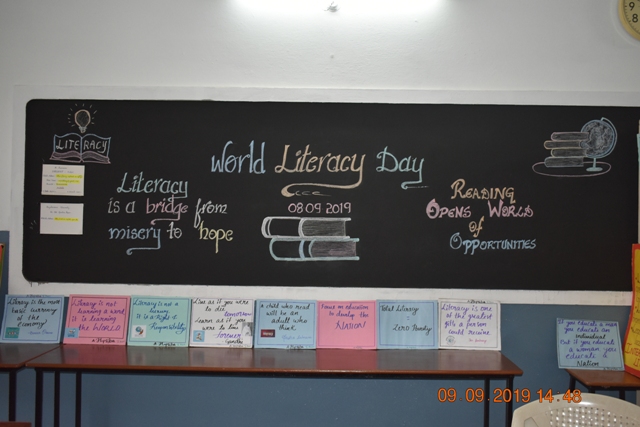 9
8
LITERACY
World Literacy Day
08.09.2019
Literacy
is a bridge from
misery to hope
READING
OPENS WORLD
of
OPPORTUNITIES
Literacy is the most
basic currency of
the
economy!
Literacy is not
learning a word,
It is learning
the WORLD
Literacy is not a
luxury
It is a Right &
Responsibility
Live as if you were
to die
tomorrow
Learn as if you
were to live
forever
A child who reads
will be an
adult who
think
Focus on education
to develop the
NATION!
Total Literacy
Zero Poverty
Literacy is one
of the greatest
gift a person
could receive
If you educate a man
you educate an
individual
But if you educate
a woman you
educate a
Nation
09 09 2019 14:48